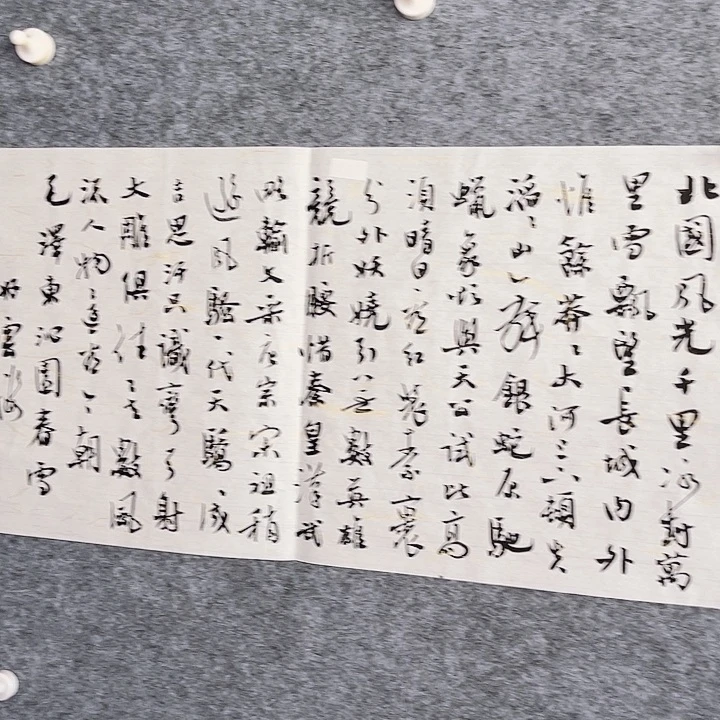 北國風光千里冰封萬
里雪飄望長城内外
惟餘莽〻大河上下頓失
滔〻山舞銀蛇原馳
蠟象欲與天公試比高
須晴日看紅裝素裹
分外妖嬈引無數英雄
競折腰惜秦皇漢武
略輸文采唐宗宋祖稍
遜風騷一代天驕成
吉思汗只識彎弓射
大雕俱往矣數風
流人物還看今朝
毛澤東沁園春雪